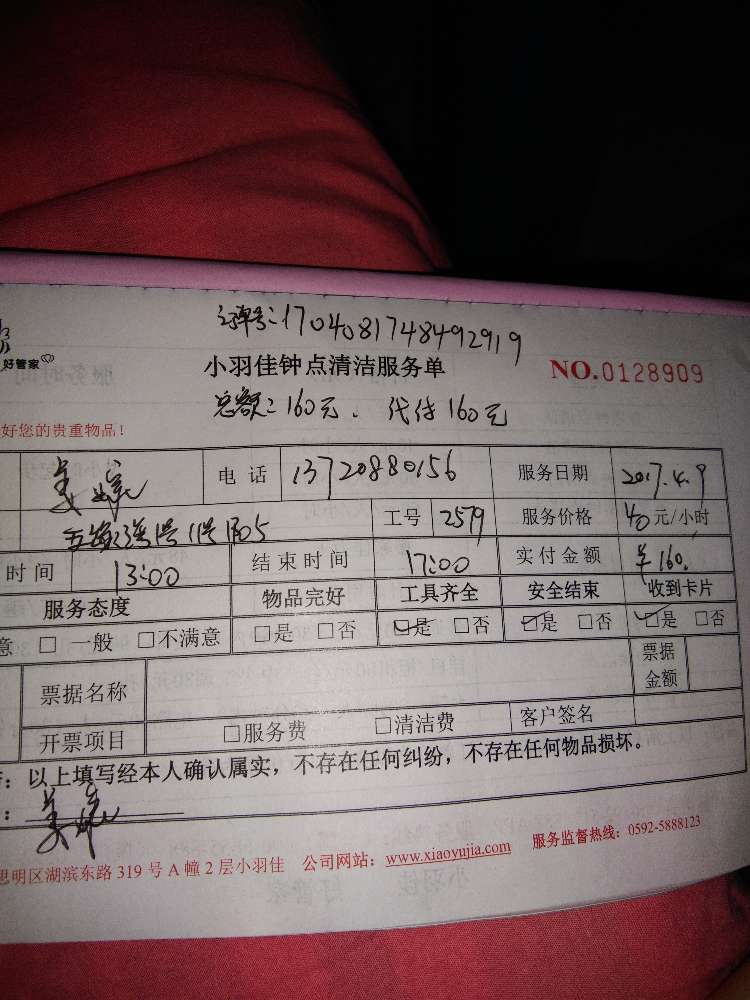 订单号:1704081748492919
好管家
小羽佳钟点清洁服务单 NO.0128909
总额:160元、代付160元
好您的贵重物品!
电话 13720880156 服务日期 2017.4.9
工号 2579 服务价格 40元/小时
时间 13:00 结束时间 17:00 实付金额 ¥160.
服务态度 物品完好 工具齐全 安全结束 收到卡片
意 □ 一般 □不满意 □是 □否 ☑是 □否 ☑是 □否 ☑是 □否
票据名称 票据金额
开票项目 □服务费 □清洁费 客户签名
:以上填写经本人确认属实,不存在任何纠纷,不存在任何物品损坏。
:
思明区湖滨东路319号A幢2层小羽佳 公司网站:www.xiaoyujia.com 服务监督热线:0592-5888123